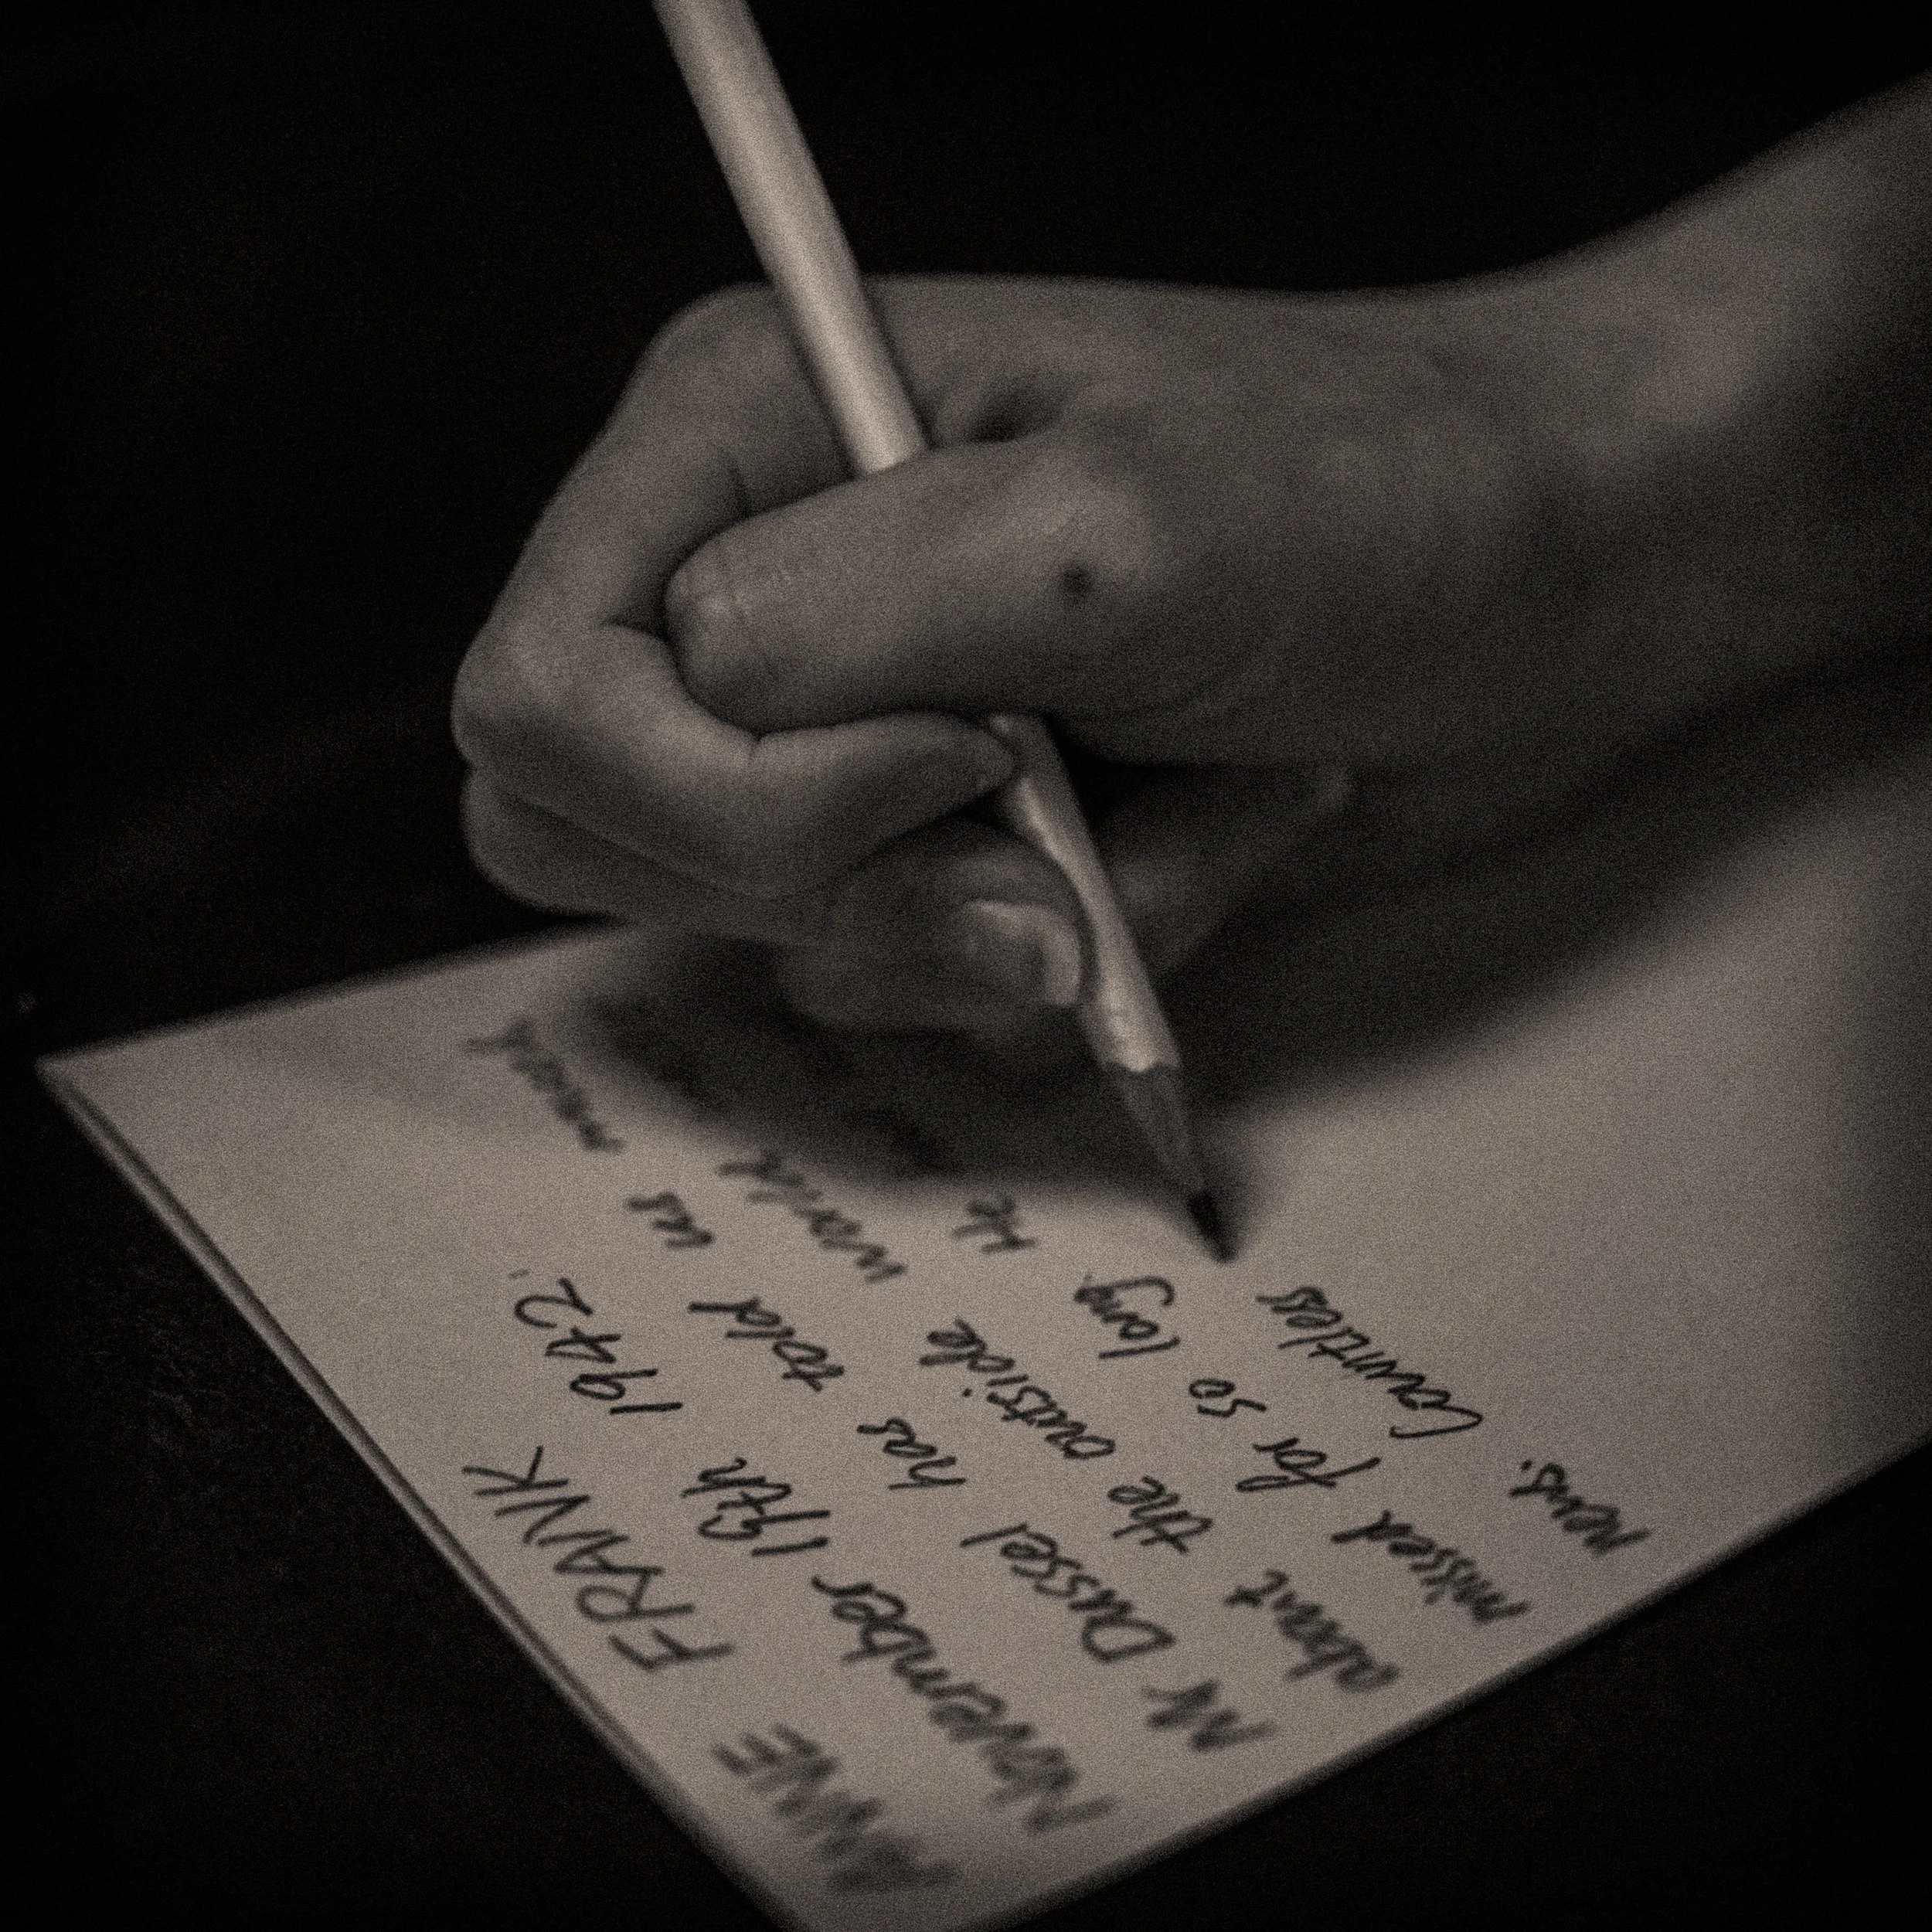 ANNE FRANK
November 19th 1942.
Mr Dussel has told us much
about the outside world
missed for so long. He
news. Countless